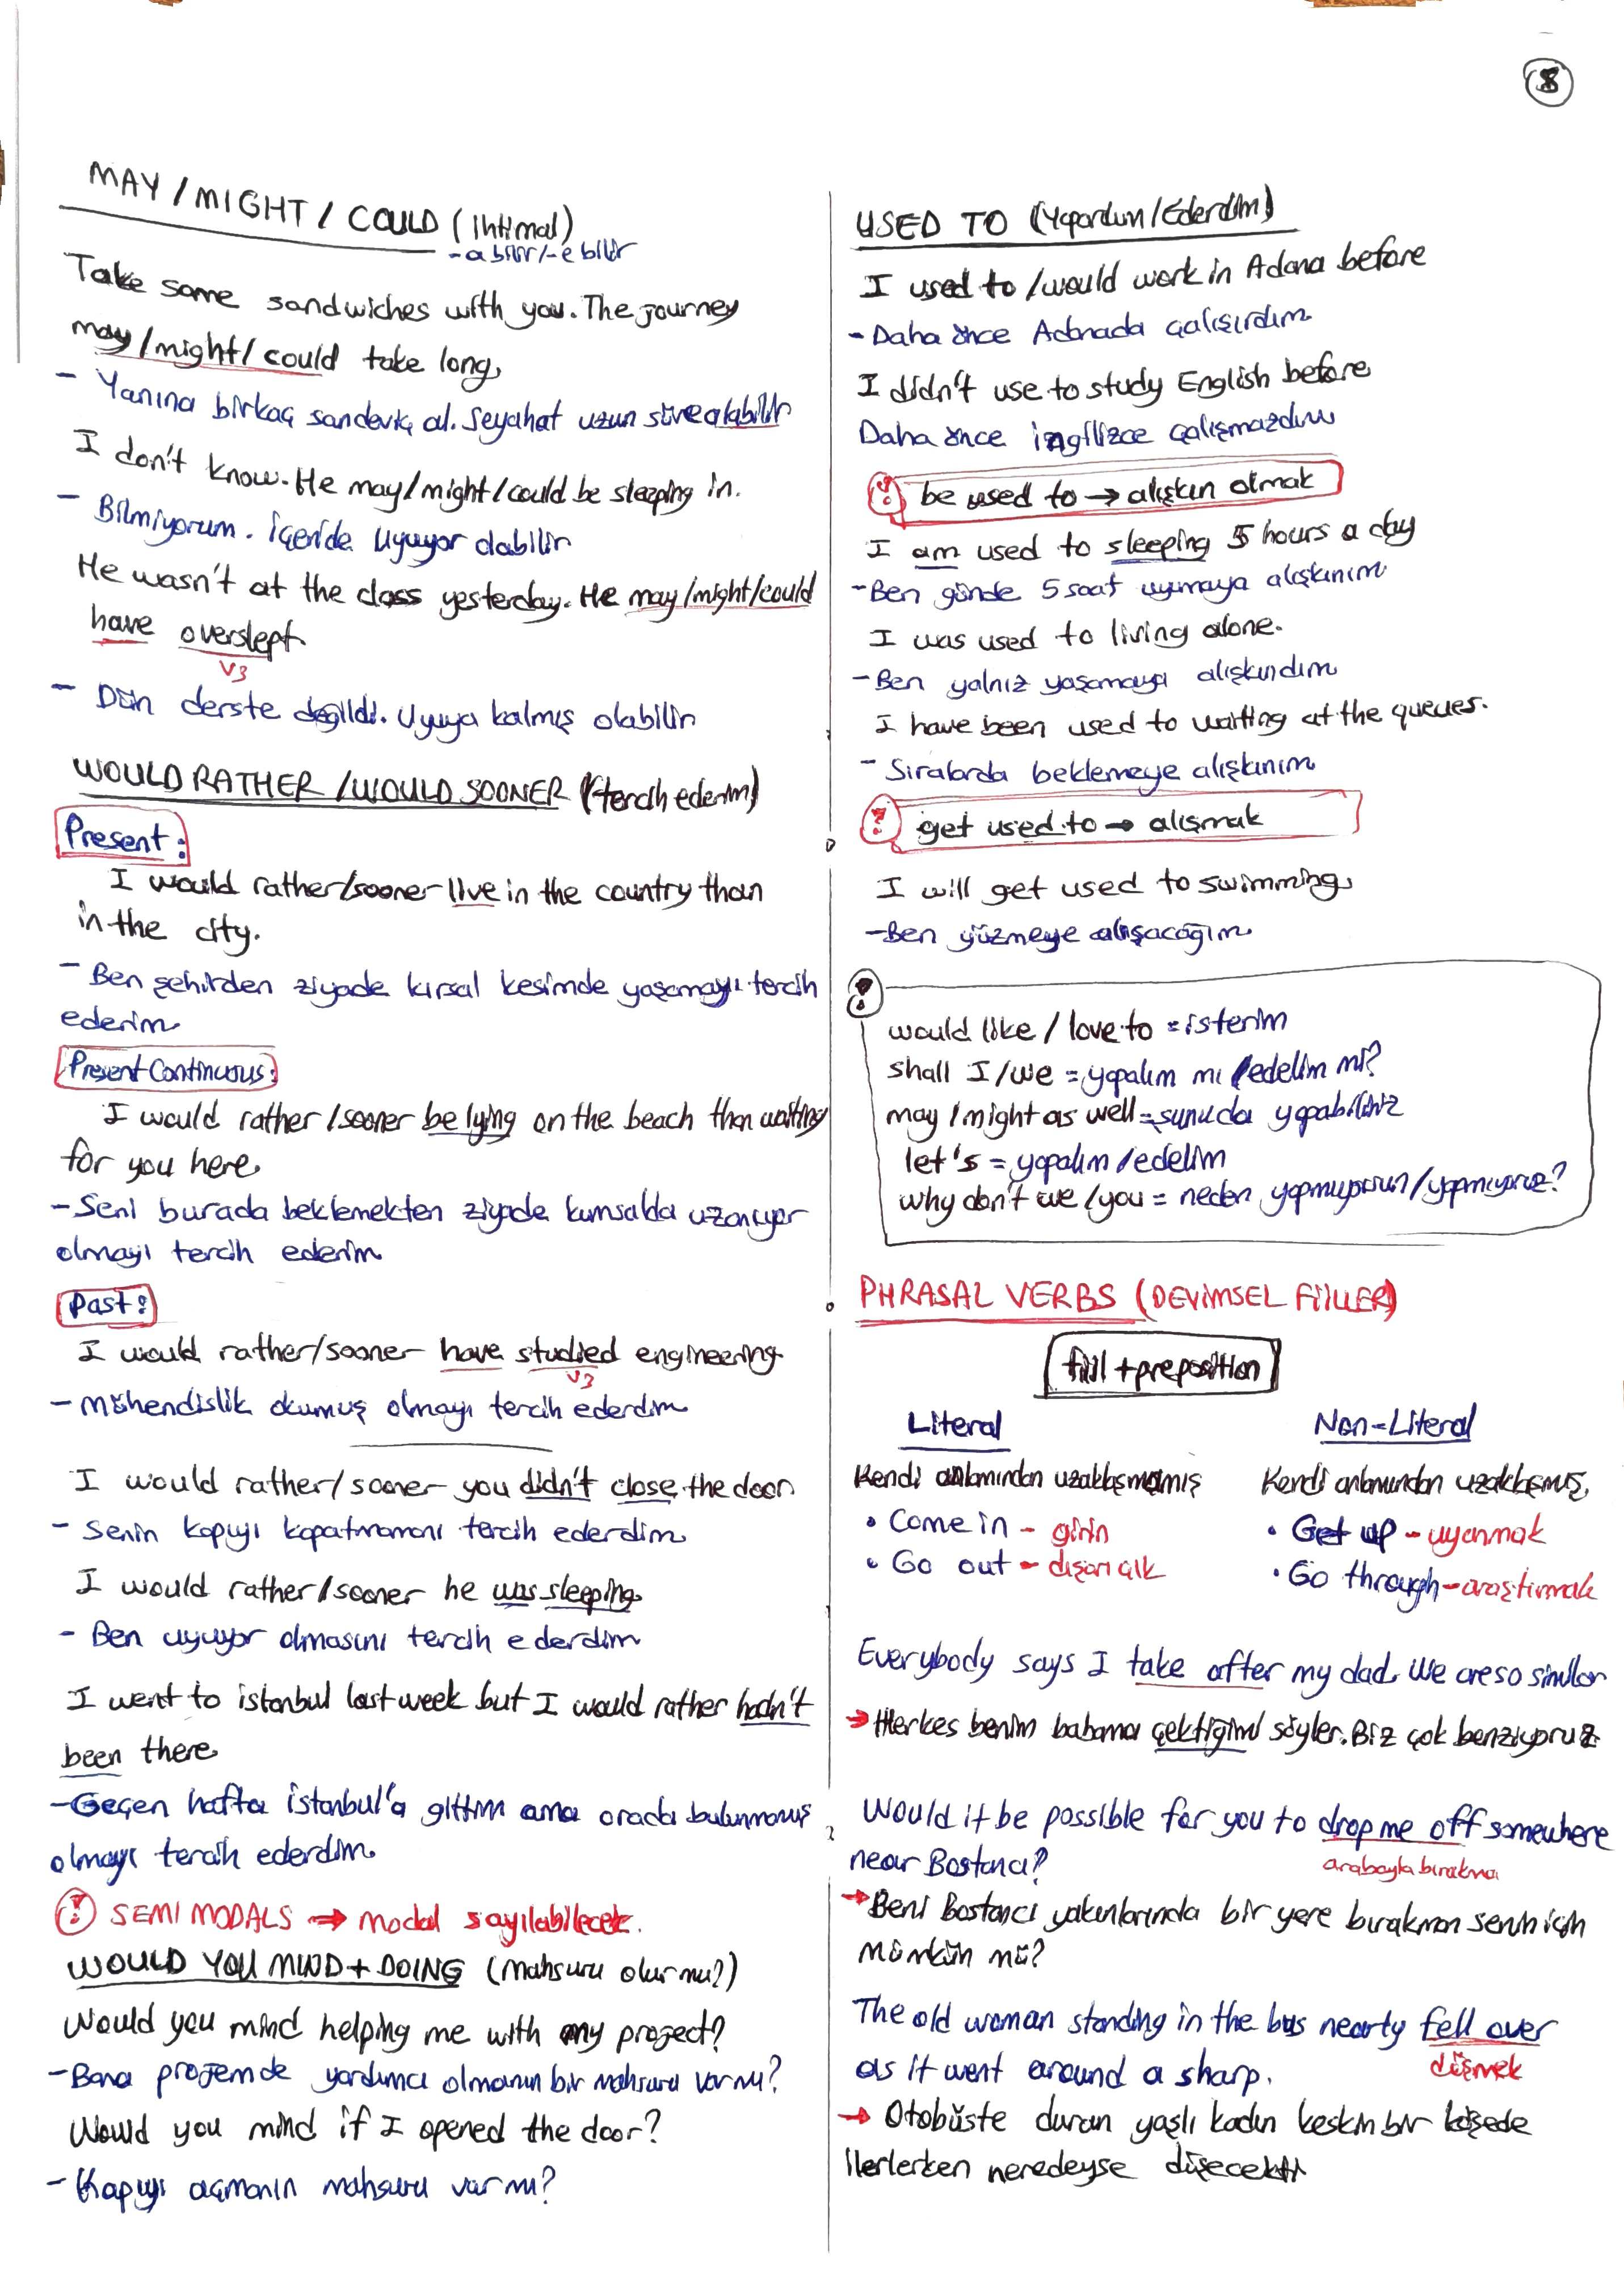 8
MAY / MIGHT / COULD (ihtimal)
-abilir/-ebilir
Take some sandwiches with you. The journey
may/might/could take long.
- Yanına birkaç sandeviç al. Seyahat uzun sürealabilir
I don't know. He may/might/could be sleeping in.
- Bilmiyorum. İçeride uyuyor olabilir
He wasn't at the class yesterday. He may/might/could
have overslept.
V3
- Dün derste değildi. Uyuya kalmış olabilir
WOULD RATHER / WOULD SOONER (tercih ederim)
Present:
I would rather/sooner live in the country than
in the city.
- Ben şehirden ziyade kırsal kesimde yaşamayı tercih
ederim
Present Continuous:
I would rather/sooner be lying on the beach than waiting
for you here
- Seni burada beklemekten ziyade kumsalda uzanıyor
olmayı tercih ederim
Past:
I would rather/sooner have studied engineering
V3
- Mühendislik okumuş olmayı tercih ederdim
I would rather/sooner you didn't close the door
- Senin kapıyı kapatmamanı tercih ederdim
I would rather/sooner he was sleeping
- Ben uyuyor olmasını tercih ederdim
I went to istanbul last week but I would rather hadn't
been there
- Geçen hafta istanbul'a gittim ama orada bulunmamış
olmayı tercih ederdim.
! SEMI MODALS → Modal sayılabilecek.
WOULD YOU MIND + DOING (Mahsuru olur mu?)
Would you mind helping me with my project?
- Bana projemde yardımcı olmanın bir mahsuru var mı?
Would you mind if I opened the door?
- Kapıyı açmanın mahsuru var mı?
USED TO (Yapardım/Ederdim)
I used to / would work in Adana before
- Daha önce Adanada çalışırdım
I didn't use to study English before
Daha önce ingilizce çalışmazdım
! be used to → alışkın olmak
I am used to sleeping 5 hours a day
- Ben günde 5 saat uyumaya alışkınım
I was used to living alone.
- Ben yalnız yaşamaya alışkındım
I have been used to waiting at the queues.
- Sıralarda beklemeye alışkınım
! get used to → alışmak
I will get used to swimming
- Ben yüzmeye alışacağım
!
would like / love to = isterim
shall I/we = yapalım mı /edelim mi?
may/might as well = şunuda yapabiliriz
let's = yapalım/edelim
why don't we/you = neden yapmıyorsun/yapmıyoruz?
PHRASAL VERBS (DEVİMSEL FİİLLER)
fiil + preposition
Literal
Kendi anlamından uzaklaşmamış
• Come in - girin
• Go out - dışarı çık
Non-Literal
Kendi anlamından uzaklaşmış
• Get up - uyanmak
• Go through - araştırmak
Everybody says I take after my dad. We are so similar
→ Herkes benim babama çektiğimi söyler. Biz çok benziyoruz
Would it be possible for you to drop me off somewhere
near Bostancı?
arabayla bırakma
→ Beni Bostancı yakınlarında bir yere bırakman senin için
mümkün mü?
The old woman standing in the bus nearly fell over
as it went around a sharp.
düşmek
→ Otobüste duran yaşlı kadın keskin bir köşede
ilerlerken neredeyse düşecekti